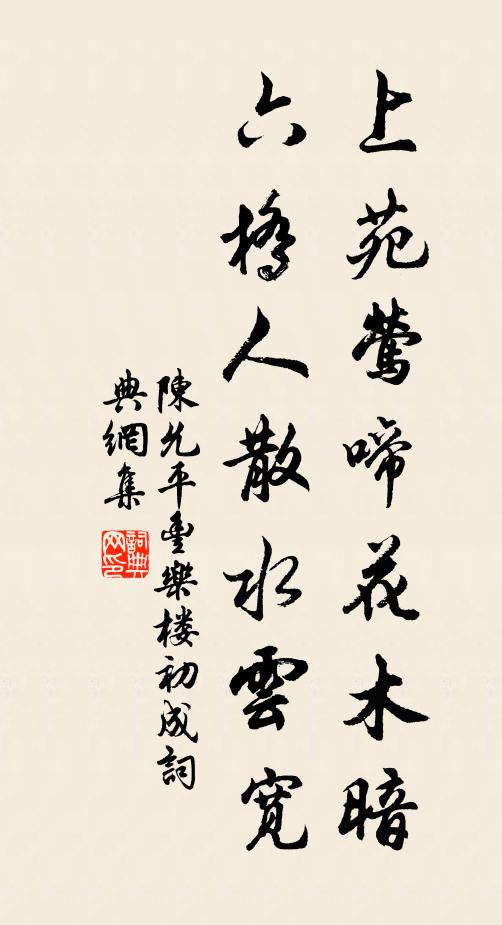 上苑鶯啼花木暗
六橋人散水雲寬
陳允平豐樂楼初成詞
典網集
詞典网印